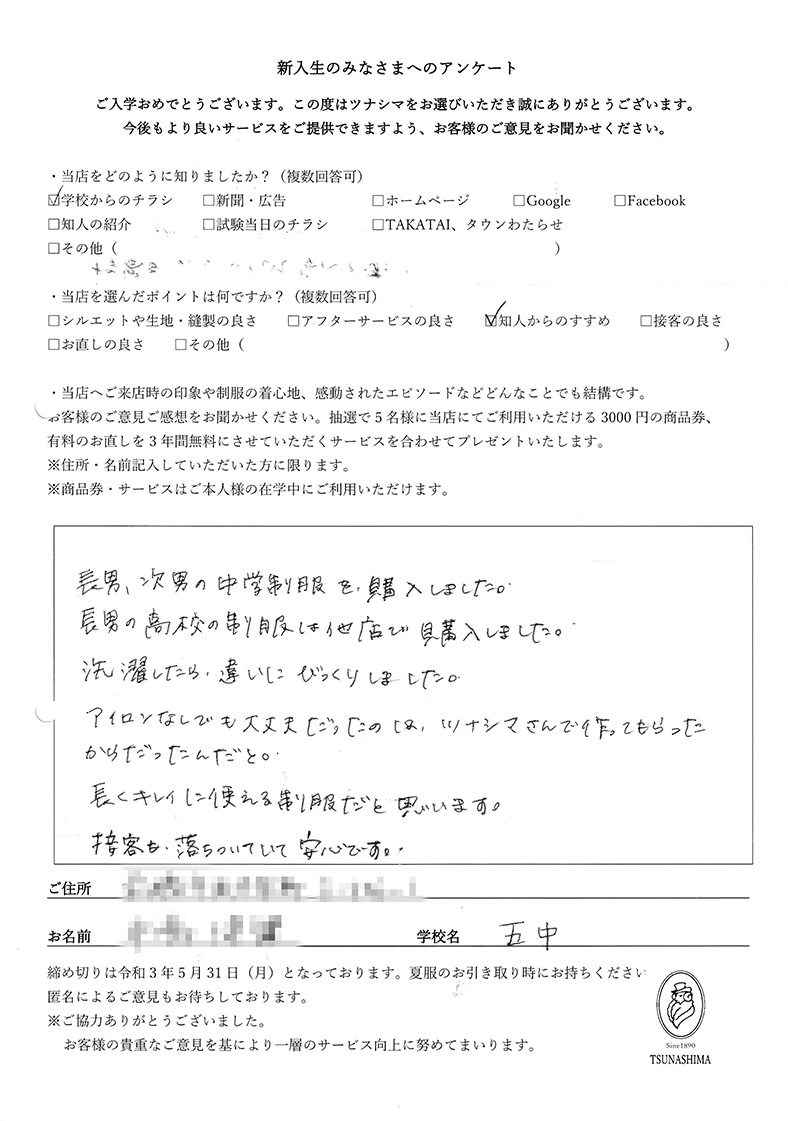 新入生のみなさまへのアンケート
ご入学おめでとうございます。この度はツナシマをお選びいただき誠にありがとうございます。
今後もより良いサービスをご提供できますよう、お客様のご意見をお聞かせください。
・当店をどのように知りましたか？（複数回答可）
☑学校からのチラシ □新聞・広告 □ホームページ □Google □Facebook
□知人の紹介 □試験当日のチラシ □TAKATAI、タウンわたらせ
□その他（ ）
・当店を選んだポイントは何ですか？（複数回答可）
□シルエットや生地・縫製の良さ □アフターサービスの良さ ☑知人からのすすめ □接客の良さ
□お直しの良さ □その他（ ）
・当店へご来店時の印象や制服の着心地、感動されたエピソードなどどんなことでも結構です。
お客様のご意見ご感想をお聞かせください。抽選で5名様に当店にてご利用いただける3000円の商品券、
有料のお直しを3年間無料にさせていただくサービスを合わせてプレゼントいたします。
※住所・名前記入していただいた方に限ります。
※商品券・サービスはご本人様の在学中にご利用いただけます。
長男、次男の中学制服を購入しました。
長男の高校の制服は他店で購入しました。
洗濯したら、違いにびっくりしました。
アイロンなしでも大丈夫だったのは、ツナシマさんで作ってもらった
からだったんだと。
長くキレイに使える制服だと思います。
接客も、落ちついていて安心です。
ご住所
お名前 学校名 五中
締め切りは令和3年5月31日（月）となっております。夏服のお引き取り時にお持ちください
匿名によるご意見もお待ちしております。
※ご協力ありがとうございました。
お客様の貴重なご意見を基により一層のサービス向上に努めてまいります。
Sine1890
TSUNASHIMA